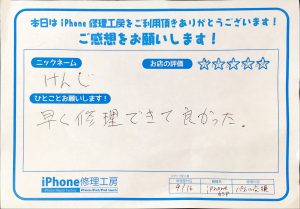 本日は iPhone 修理工房をご利用頂きありがとうございます!
ご感想をお願いします!
ニックネーム
お店の評価
けんじ
ひとことお願いします!
早く修理できて良かった。
iPhone修理工房
9/16
iPhone